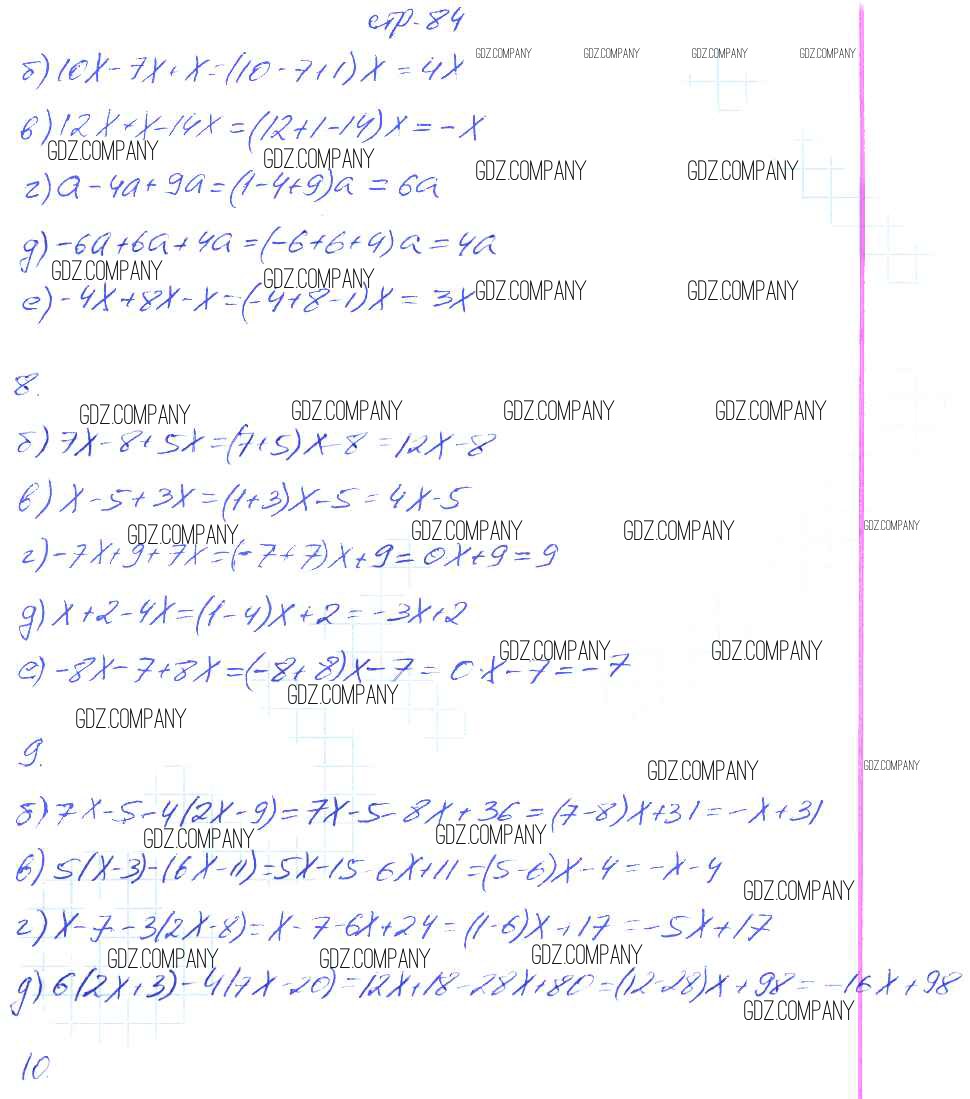 стр-84
GDZ.COMPANY GDZ.COMPANY GDZ.COMPANY GDZ.COMPANY
б) 10x-7x+x=(10-7+1)x=4x
в) 12x+x-14x=(12+1-14)x=-x
GDZ.COMPANY GDZ.COMPANY GDZ.COMPANY GDZ.COMPANY
г) a-4a+9a=(1-4+9)a=6a
д) -6a+6a+4a=(-6+6+4)a=4a
GDZ.COMPANY GDZ.COMPANY GDZ.COMPANY GDZ.COMPANY
е) -4x+8x-x=(-4+8-1)x=3x
8.
GDZ.COMPANY GDZ.COMPANY GDZ.COMPANY GDZ.COMPANY
б) 7x-8+5x=(7+5)x-8=12x-8
в) x-5+3x=(1+3)x-5=4x-5
GDZ.COMPANY GDZ.COMPANY GDZ.COMPANY GDZ.COMPANY
г) -7x+9+7x=(-7+7)x+9=0x+9=9
д) x+2-4x=(1-4)x+2=-3x+2
GDZ.COMPANY GDZ.COMPANY
е) -8x-7+8x=(-8+8)x-7=0·x-7=-7
GDZ.COMPANY GDZ.COMPANY
9.
GDZ.COMPANY GDZ.COMPANY
б) 7x-5-4(2x-9)=7x-5-8x+36=(7-8)x+31=-x+31
GDZ.COMPANY GDZ.COMPANY
в) 5(x-3)-(6x-11)=5x-15-6x+11=(5-6)x-4=-x-4
GDZ.COMPANY
г) x-7-3(2x-8)=x-7-6x+24=(1-6)x+17=-5x+17
GDZ.COMPANY GDZ.COMPANY GDZ.COMPANY
д) 6(2x+3)-4(7x-20)=12x+18-28x+80=(12-28)x+98=-16x+98
GDZ.COMPANY
10.